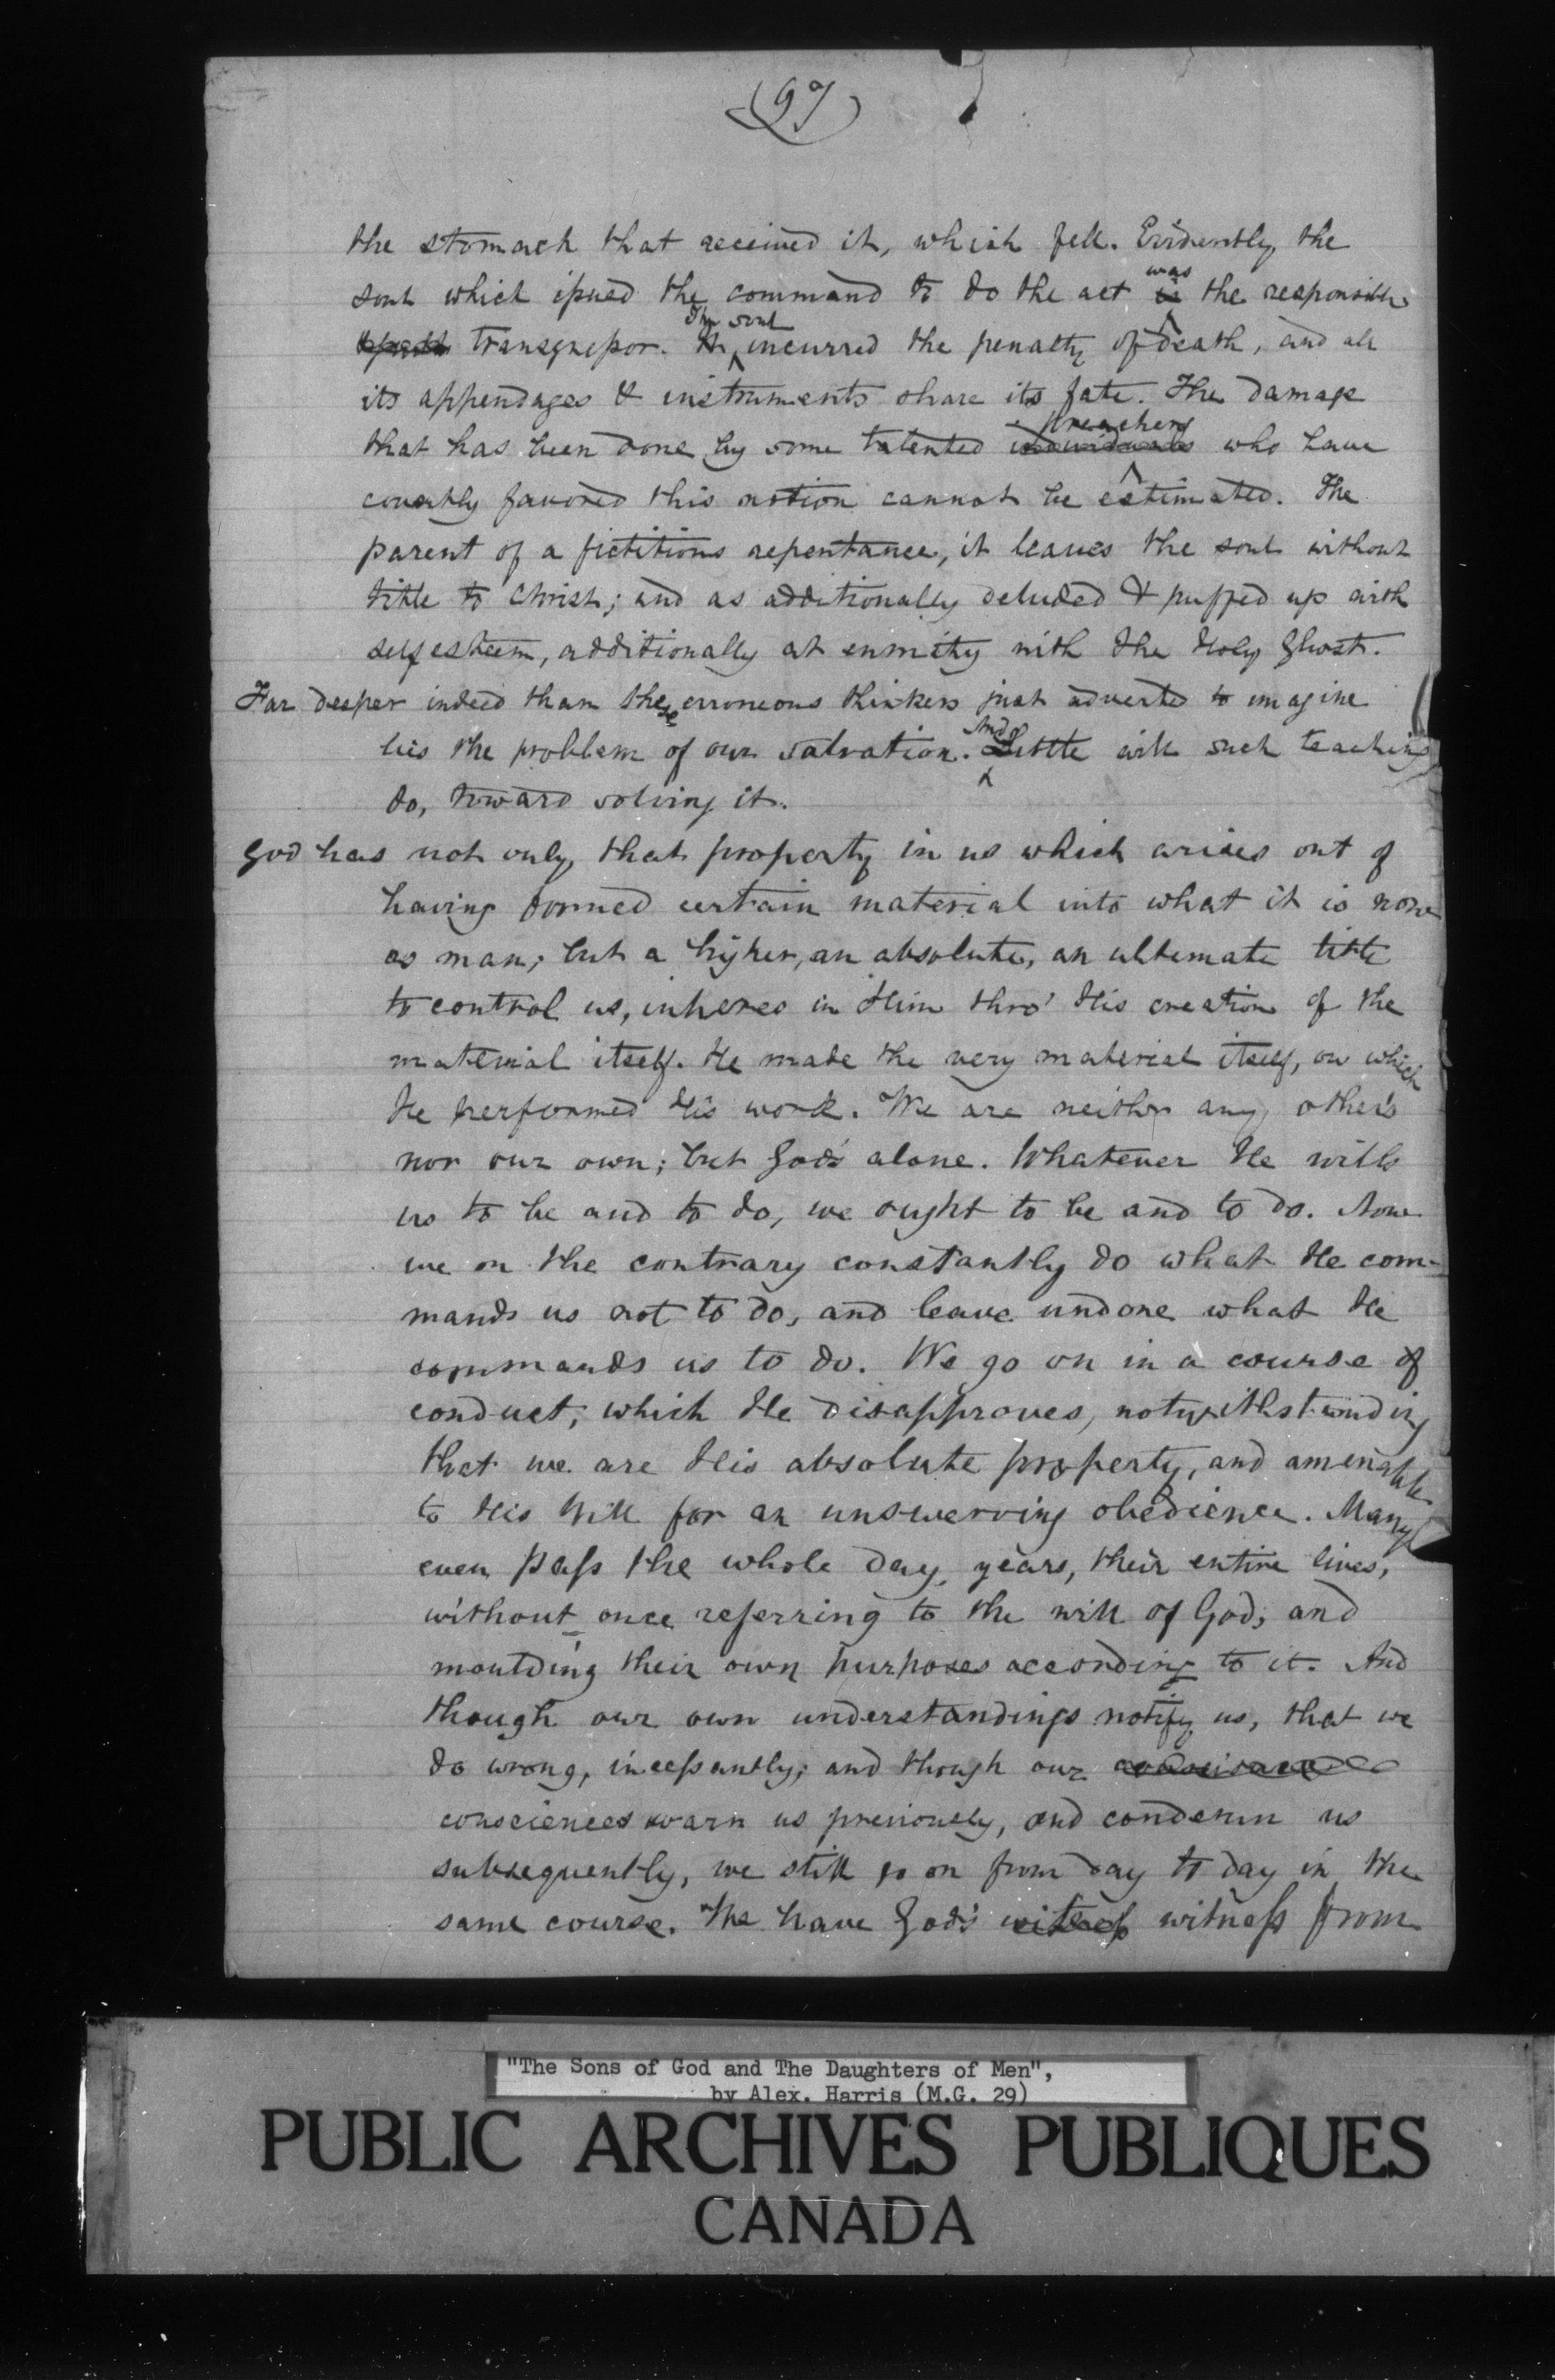 (97)
the stomach that received it, which fell. Evidently, the
soul which issued the command to do the act was the responsible
transgressor. The soul incurred the penalty of death, and all
its appendages & instruments share its fate. The damage
that has been done by some talented preachers who have
covertly favored this notion cannot be estimated. The
parent of a fictitious repentance, it leaves the soul without
title to Christ; and as additionally deluded & puffed up with
self esteem, additionally at enmity with the Holy Ghost.
Far deeper indeed than these erroneous thinkers just adverted to imagine
lies the problem of our salvation. And little will such teaching
do, toward solving it.
God has not only, that property in us which arises out of
having formed certain material into what it is now
as man; but a higher, an absolute, an ultimate title
to control us, inheres in Him thro' His creation of the
material itself. He made the very material itself, on which
He performed His work. We are neither any other's
nor our own; but God's alone. Whatever He wills
us to be and to do, we ought to be and to do. Now
we on the contrary constantly do what He com-
mands us not to do, and leave undone what He
commands us to do. We go on in a course of
conduct, which He disapproves, notwithstanding
that we are His absolute property, and amenable
to His Will for an unswerving obedience. Many
even pass the whole day, years, their entire lives,
without once referring to the will of God, and
moulding their own purposes according to it. And
though our own understandings notify us, that we
do wrong, incessantly; and though our
consciences warn us previously, and condemn us
subsequently, we still go on from day to day in the
same course. We have God's witness from
"The Sons of God and The Daughters of Men",
by Alex. Harris (M.G. 29)
PUBLIC ARCHIVES PUBLIQUES
CANADA